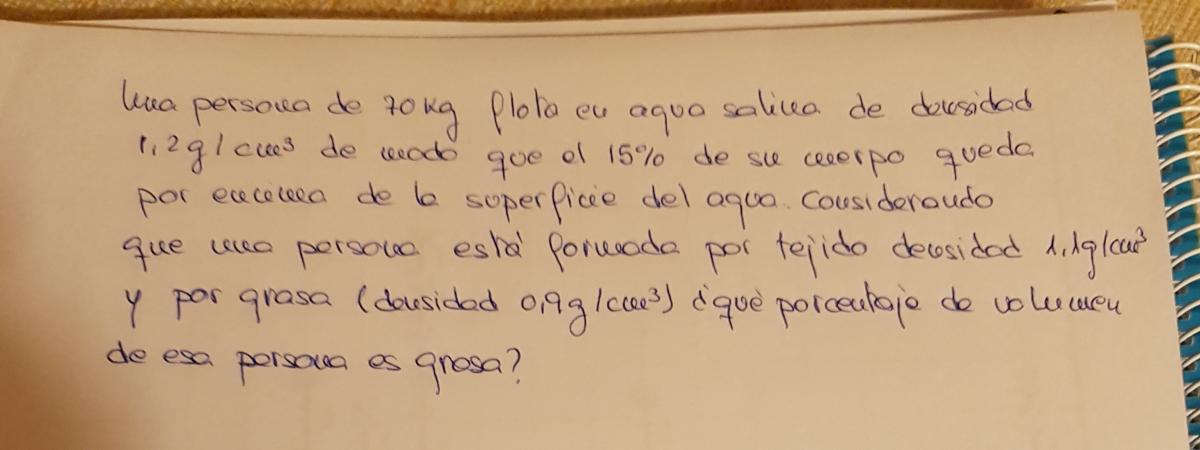 Una persona de 70 kg flota en agua salina de densidad
1,2g/cm³ de modo que el 15% de su cuerpo queda
por encima de la superficie del agua. Considerando
que una persona está formada por tejido densidad 1,1g/cm³
y por grasa (densidad 0,9g/cm³) ¿qué porcentaje de volumen
de esa persona es grasa?